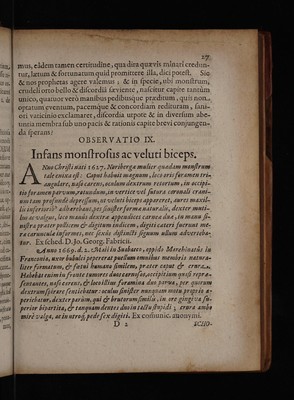 27
mus, eâdem tamen certitudine, qua dira quævis minari credun-
tur, lætum & fortunatum quid promittere illa, dici potest. Sic
& nos prophetas agere valemus; & in specie, ubi monstrum,
crudeli orto bello & discordiâ sæviente, nascitur capite tantum
unico, quatuor verò manibus pedibusque præditum, quis non,
optatum eventum, pacemque & concordiam redituram, sani-
ori vaticinio exclamaret, discordia utpote & in diversum abe-
untia membra sub uno pacis & rationis capite brevi conjungen-
da sperans?
OBSERVATIO IX.
Infans monstrosus ac veluti biceps.
ANno Christi nati 1617. Noribergæ mulier quoddam monstrum
tale enixa est: Caput habuit magnum, loco oris foramen tri-
angulare, naso carens, oculum dextrum retortum, in occipi-
tio foramen parvum, rotundum, in vertice vel sutura coronali crani-
um tam profundè depressum, ut veluti biceps appareret, aures maxil-
lis inferiorib' adhærebant, pes sinister formæ naturalis, dexter monti-
bus ac valgus, loco manûs dextræ appendices carneæ duæ, in manu si-
nistra præter pollicem & digitum indicem, digiti cæteri fuerunt me-
ræ carunculæ informes, nec sexûs distinctè signum ullum adverteba-
tur. Ex sched. D. Jo. Georg. Fabricii.
Anno 1669. d. 2. Maii in Snabaco, oppido Marchionali in
Franconia, uxor bubulci pepererat puellum omnibus membris natura-
liter formatum, & fœtui humano similem, præter caput & crura.
Habebat enim in fronte tumores duos carnosos, occipitium quasi repræ-
sentantes, naso carens, & loco illius foramina duo parva, per quorum
dextrum spirare sentiebatur: oculus sinister nunquam motu proprio a-
periebatur, dexter parum, qui & brutorum similis, in ore gingiva su-
perior bipartita, & tanquam dentes duo in tectu stupidi; crura ambo
mirè valga, ac in utroq; pede sex digiti. Ex communic. anonymi.
D 2
SCHO-